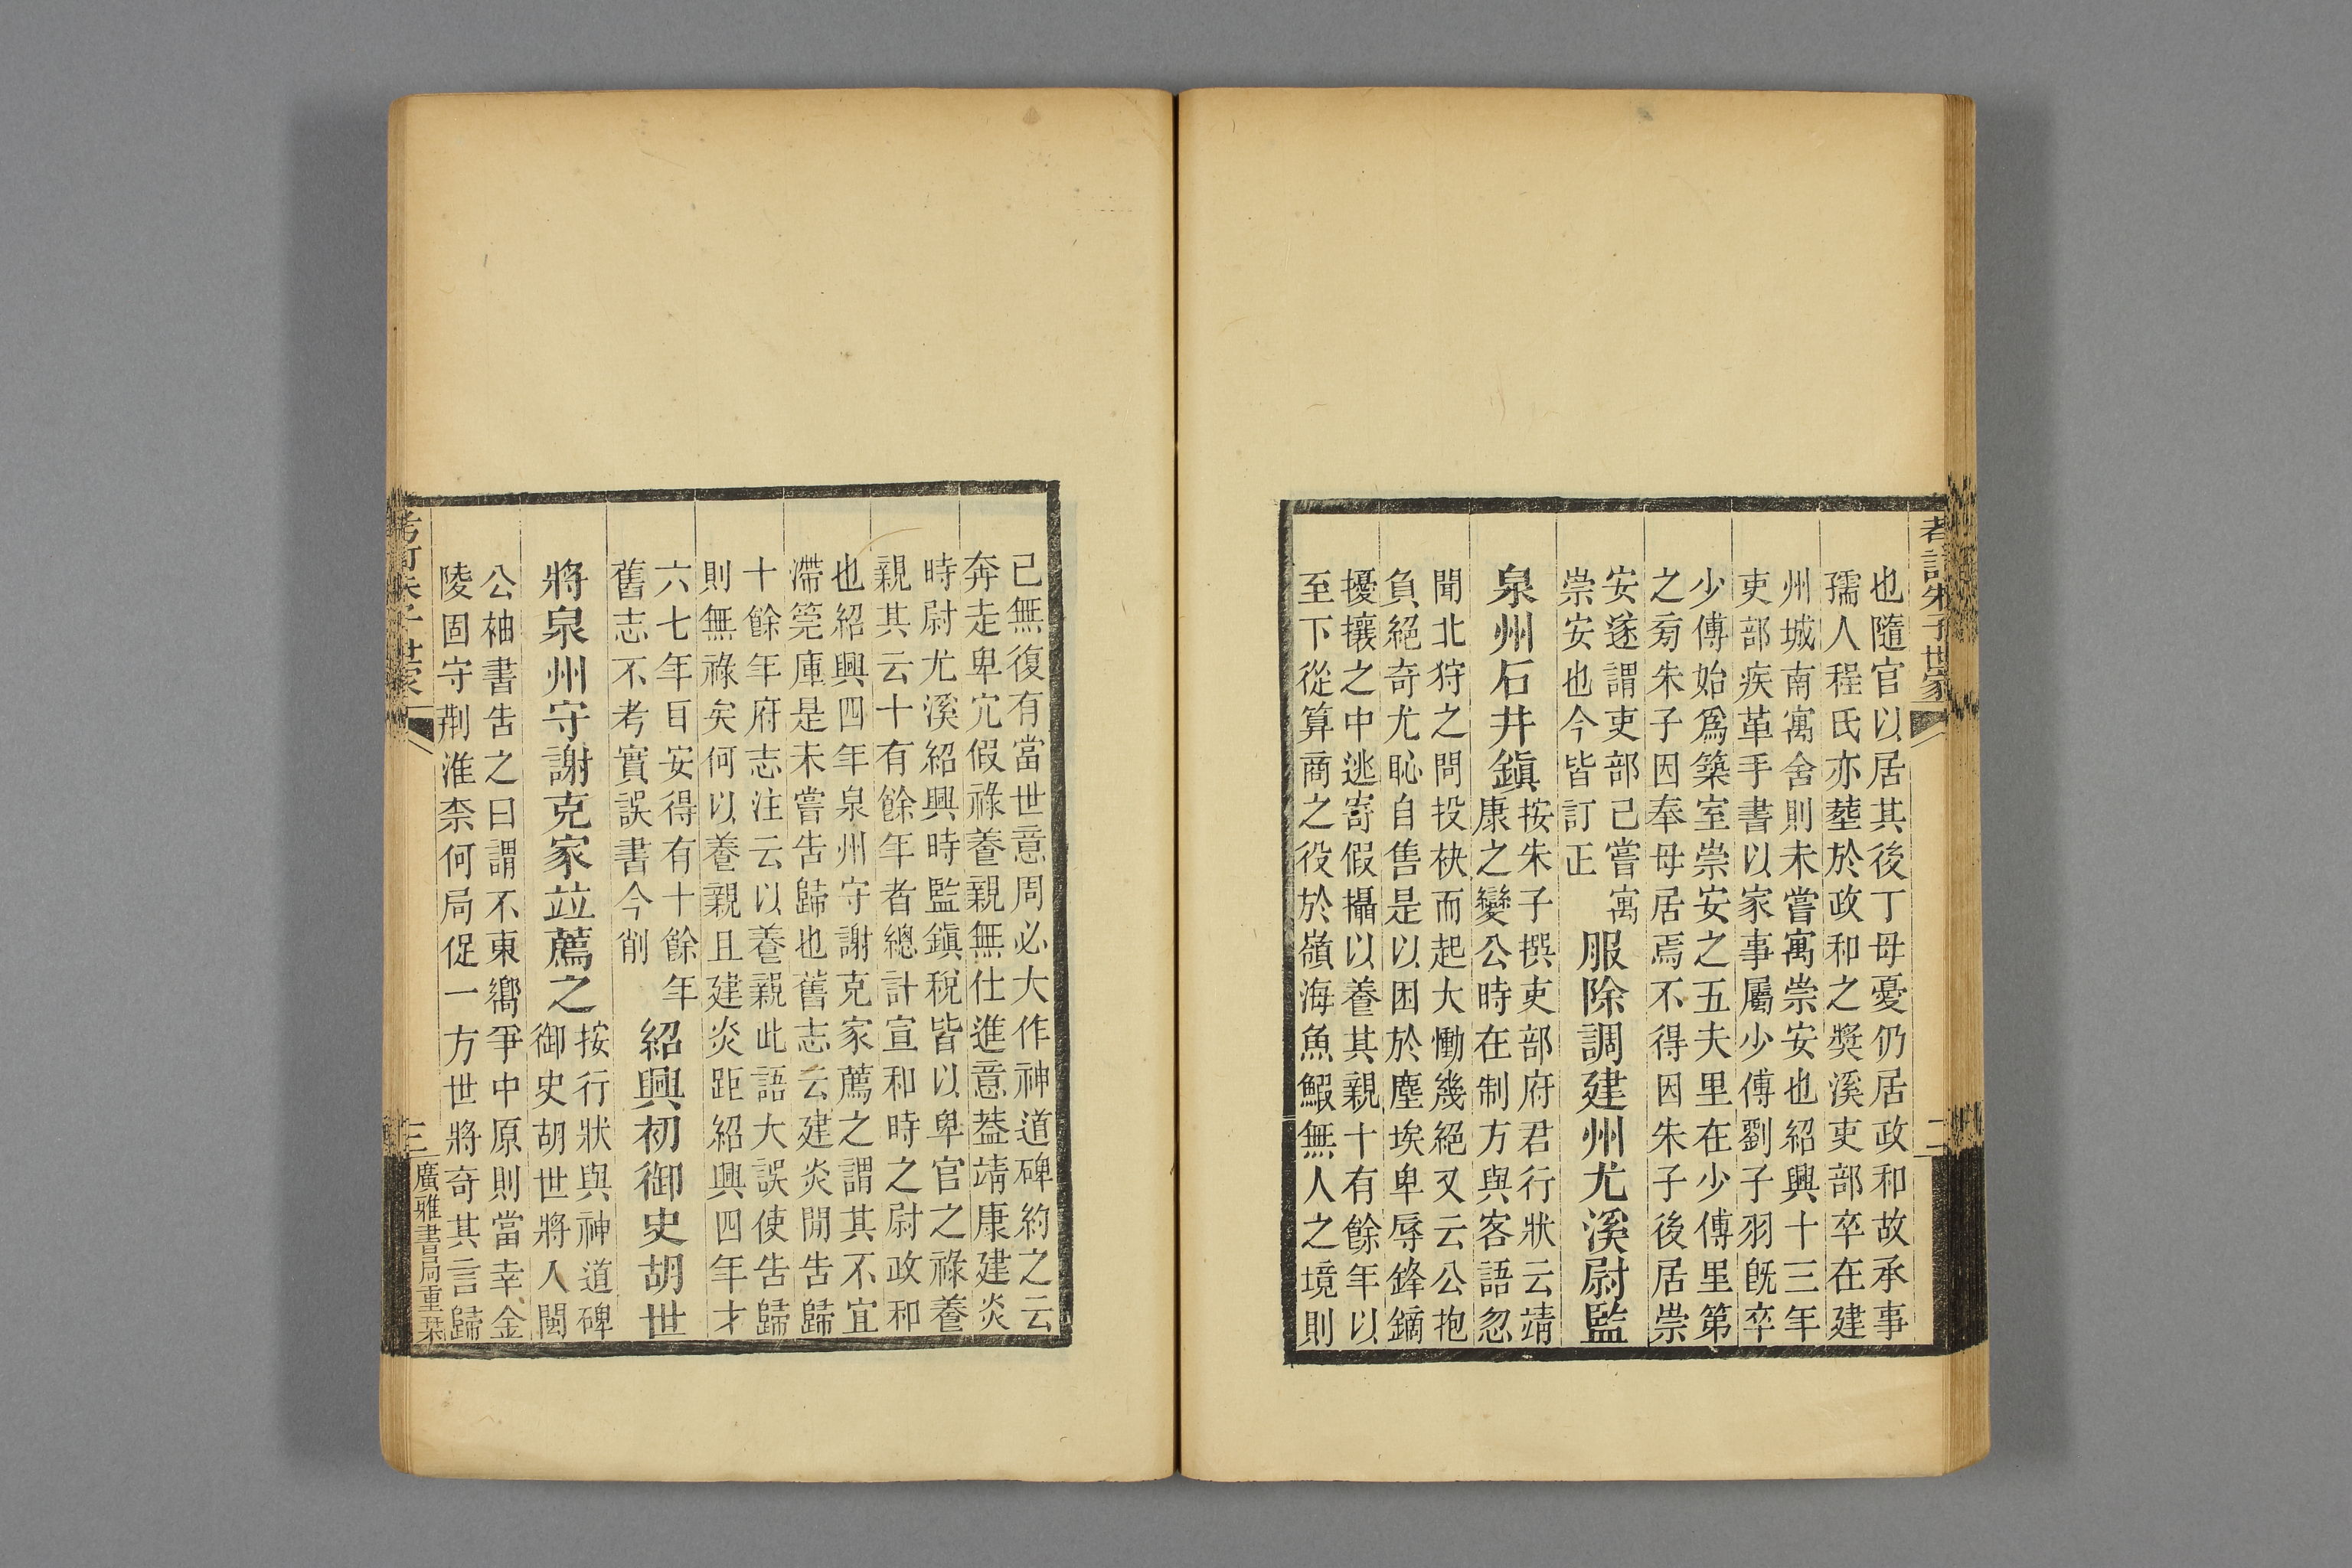 考訂朱子世家
二
也隨官以居其後丁母憂仍居政和故承事
孺人程氏亦塟於政和之獎溪吏部卒在建
州城南寓舍則未嘗寓崇安也紹興十三年
吏部疾革手書以家事屬少傅劉子羽旣卒
少傅始爲築室崇安之五夫里在少傅里第
之旁朱子因奉母居焉不得因朱子後居崇
安遂謂吏部已嘗寓
崇安也今皆訂正
服除調建州尤溪尉監
泉州石井鎮
按朱子撰吏部府君行狀云靖
康之變公時在制方與客語忽
聞北狩之問投袂而起大慟幾絕又云公抱
負絕奇尤恥自售是以困於塵埃卑辱鋒鏑
擾攘之中逃寄假攝以養其親十有餘年以
至下從算商之役於嶺海魚鰕無人之境則
已無復有當世意周必大作神道碑約之云
奔走卑宂假祿養親無仕進意葢靖康建炎
時尉尤溪紹興時監鎮稅皆以卑官之祿養
親其云十有餘年者總計宣和時之尉政和
也紹興四年泉州守謝克家薦之謂其不宜
滯筦庫是未嘗告歸也舊志云建炎閒告歸
十餘年府志注云以養親此語大誤使告歸
則無祿矣何以養親且建炎距紹興四年才
六七年耳安得有十餘年
舊志不考實誤書今削
紹興初御史胡世
將泉州守謝克家竝薦之
按行狀與神道碑
御史胡世將人閩
公袖書告之曰謂不東嚮爭中原則當幸金
陵固守荆淮柰何局促一方世將奇其言歸
考訂朱子世家
三
廣雅書局重栞